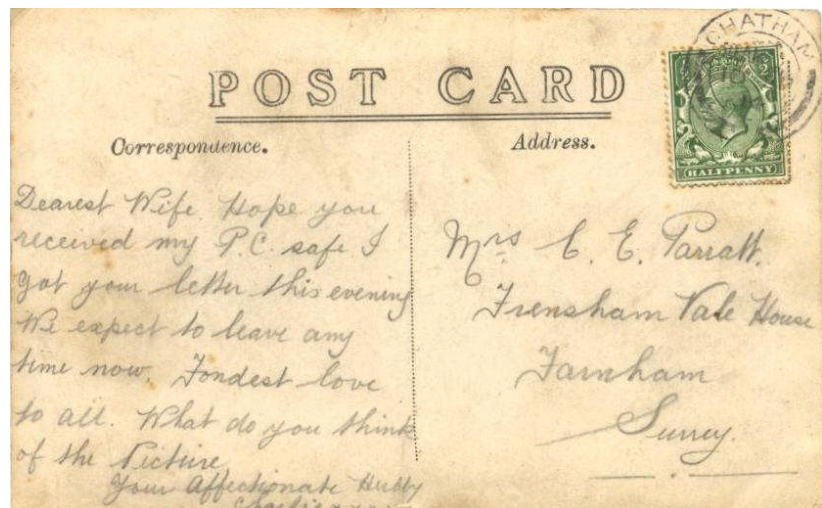 CHATHAM
POST CARD
HALFPENNY
Correspondence.
Address.
Dearest Wife Hope you
received my P.C. safe I
got your letter this evening
We expect to leave any
time now. Fondest love
to all. What do you think
of the Picture
Your Affectionate Hubby
Mrs C. E. Parratt.
Frensham Vale House
Farnham
Surrey.